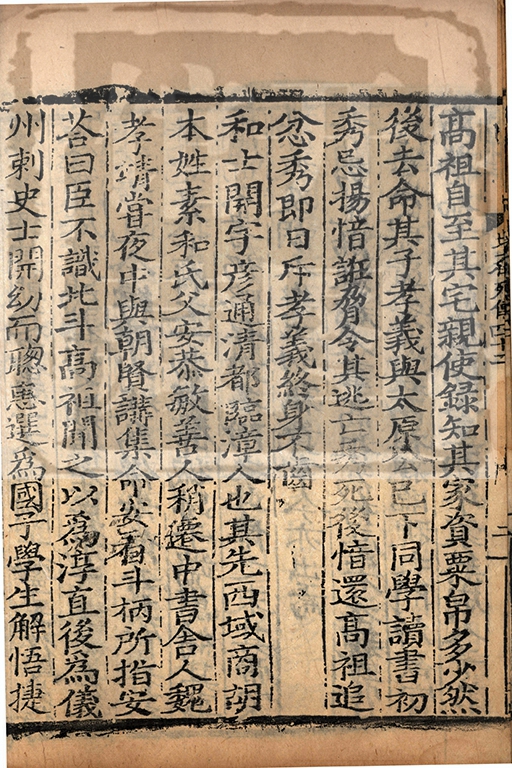 列傳四十二
二
高祖自至其宅親使録知其家資粟帛多少然
後去命其子孝義與太原公已下同學讀書初
秀忌揚愔誑脅令其逃亡秀死後愔還高祖追
忿秀即日斥孝義終身不齒
和士開字彦通清都臨漳人也其先西域商胡
本姓素和氏父安恭敏善人稍遷中書舍人魏
孝靖嘗夜中與朝賢講集命安看斗柄所指安
荅曰臣不識北斗高祖聞之以爲淳直後爲儀
州刺史士開幼而聰惠選爲國子學生解悟捷